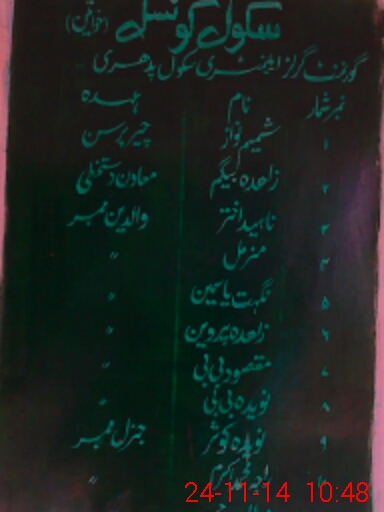 سکول کونسل (خواتین)
گورنمنٹ گرلز ایلیمنٹری سکول پدھری
نمبر شمار نام عہدہ
۱ شمیم نواز چیئر پرسن
۲ زاھدہ بیگم معاون دستخطی
۳ ناہید اختر والدین ممبر
۴ مزمل 〃
۵ نگہت یاسین 〃
۶ زاھدہ پروین 〃
۷ مقصود بی بی 〃
۸ نویدہ بی بی 〃
۹ نویدہ کوثر جنرل ممبر
محمد اکرم 〃
24-11-14 10:48